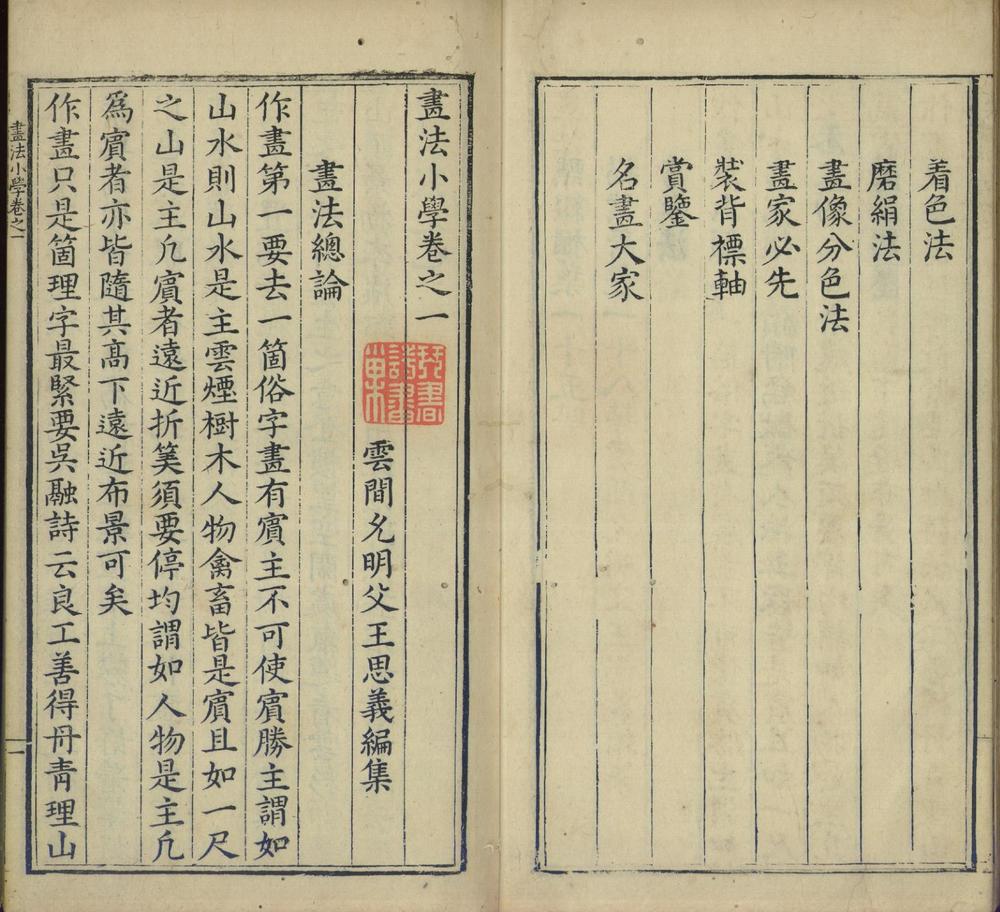 着色法
磨絹法
畫像分色法
畫家必先
裝背標軸
賞鑒
名畫大家
畫法小學卷之一
雲間允明父王思義編集
畫法總論
作畫第一要去一箇俗字畫有賓主不可使賓勝主謂如
山水則山水是主雲煙樹木人物禽畜皆是賓且如一尺
之山是主凡賓者遠近折筭須要停均謂如人物是主凡
爲賓者亦皆隨其高下遠近布景可矣
作畫只是箇理字最緊要吳融詩云良工善得丹青理山
畫法小學卷之一
一